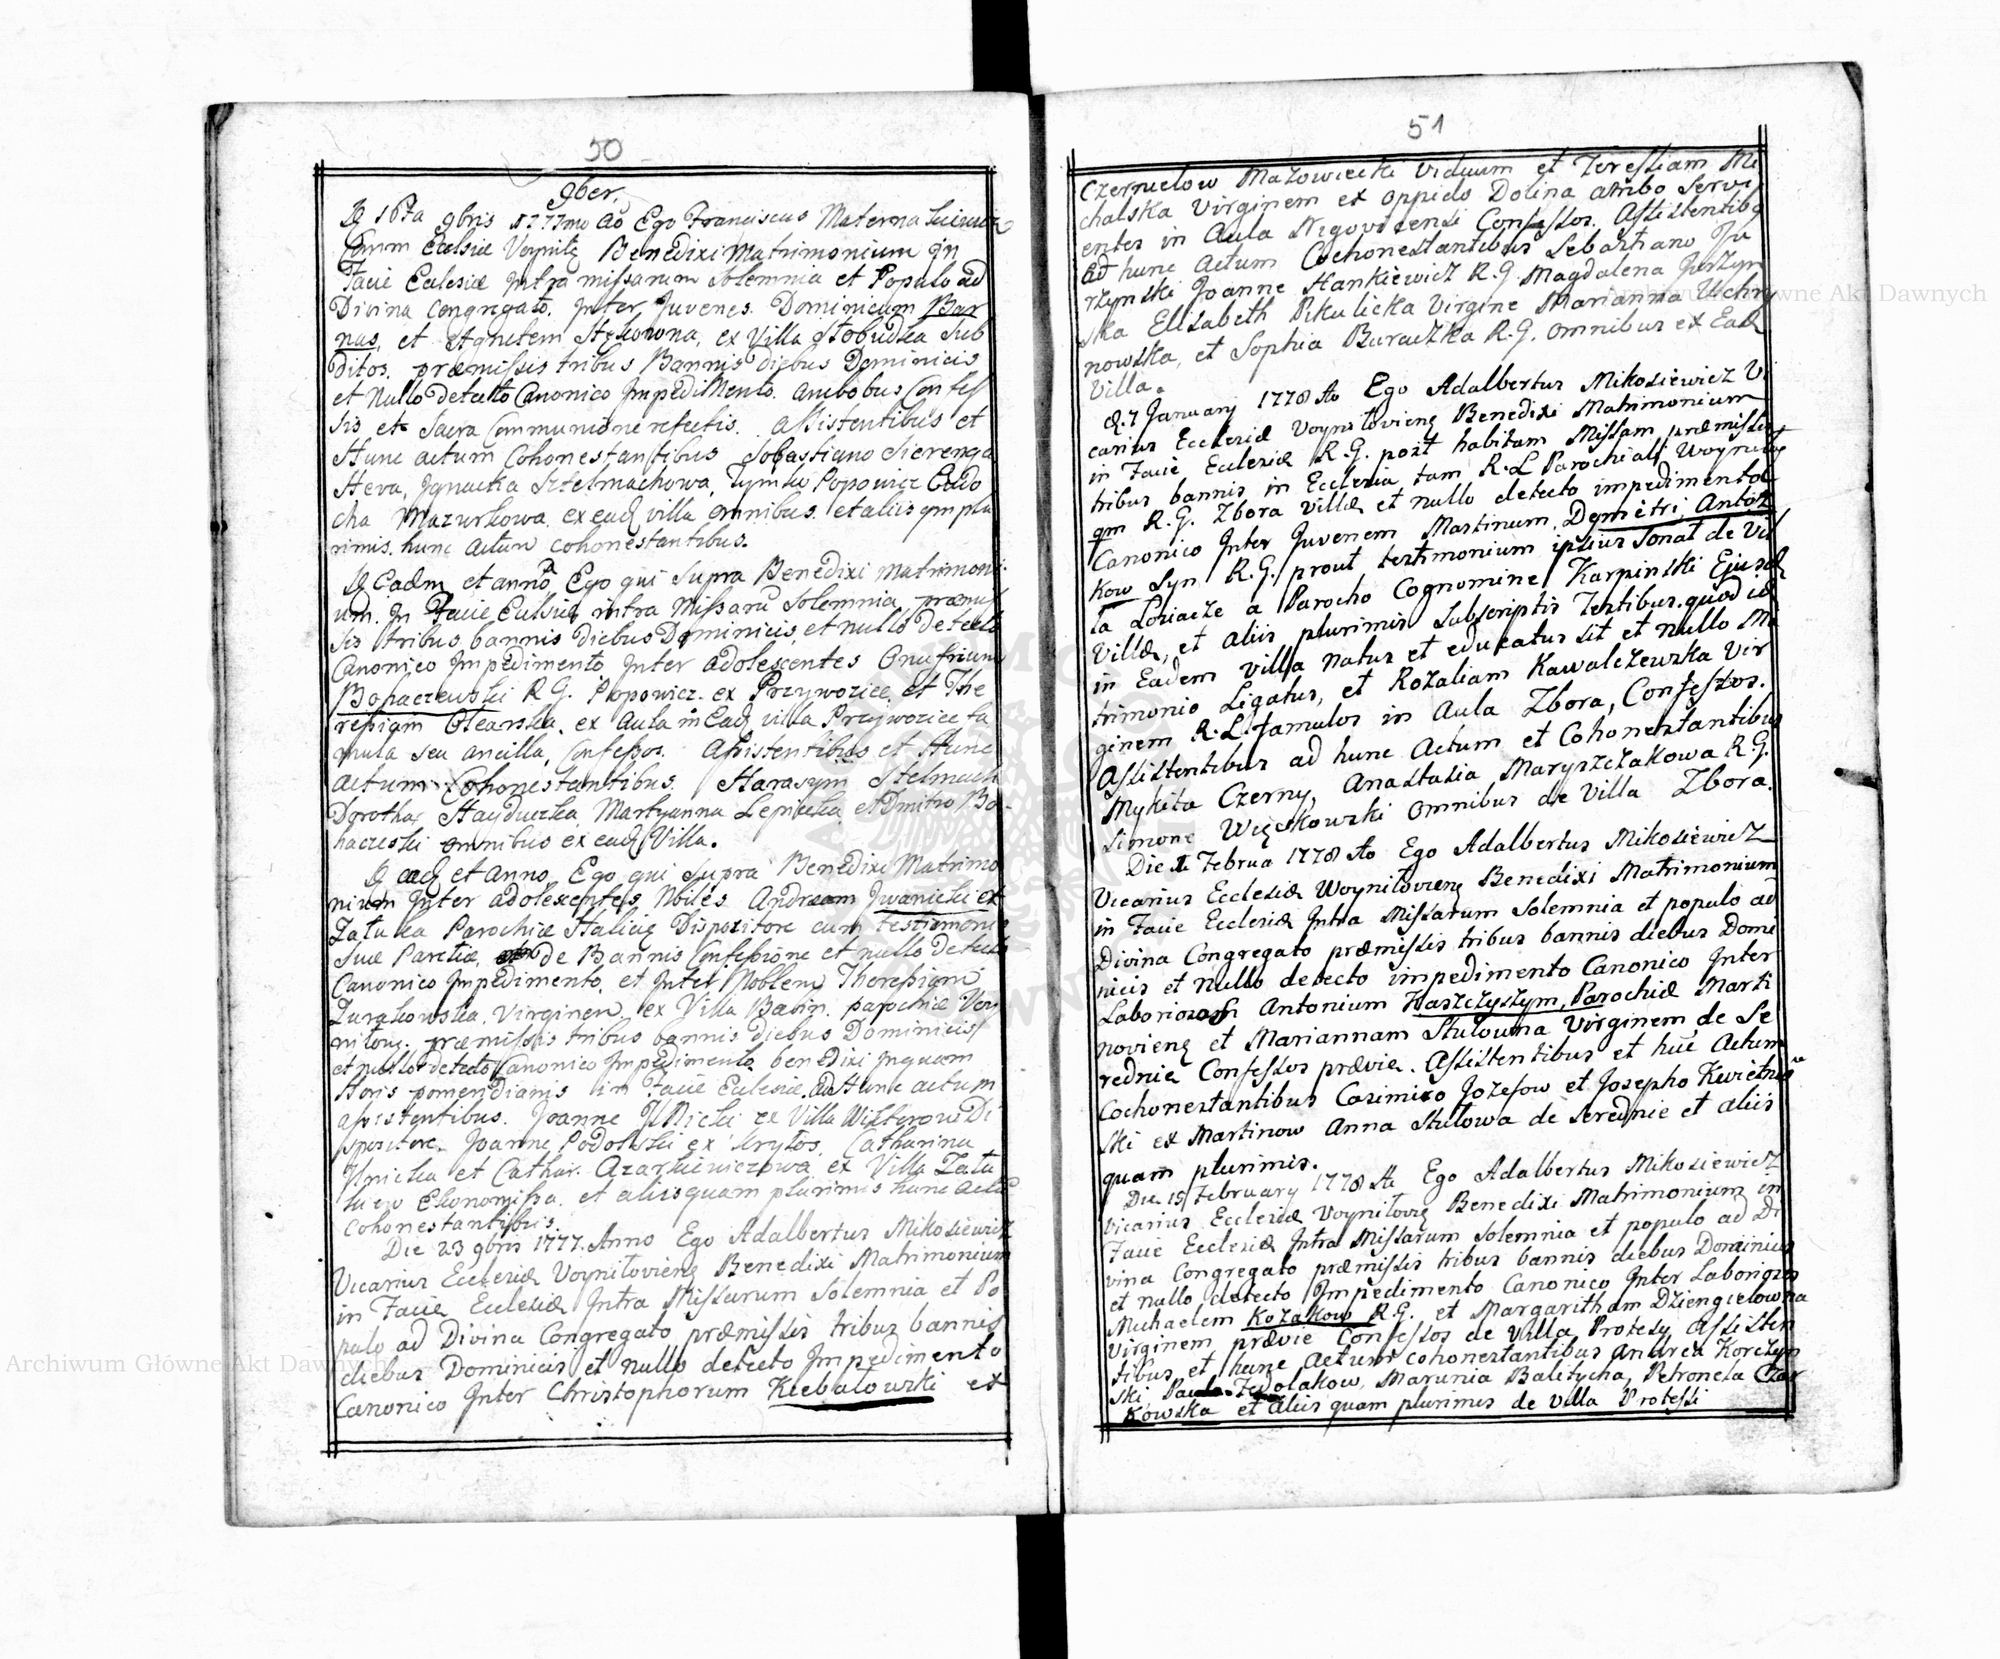 50
9ber.
D 16ta 9bris 1777mo Ao Ego Franciscus Materna
Ecclsiæ Benedixi Matrimonium in
Facie Ecclesiæ intra missarum Solemnia et Populo ad
Divina Congregato. Inter Juvenes Dominicum Bar
nas, et Agnetem ex Villa Stobudka Sub
ditos. præmissis tribus Bannis diebus Dominicis
et Nullo Detecto Canonico Impedimento. ambobus Confes
sis et Sacra Communione refectis. Assistentibus et
Hunc actum Cohonestantibus Sobastiano Sierenga
Heva, Ignacka Sztelmachowa, Tymko Popowicz Eudo
cha Mazurkowa ex ead villa omnibus. et aliis qm plu
rimis. hunc actum cohonestantibus.
D Eadm et anno Ego qui Supra Benedixi matrimoni
um. In Facie Ecclsiæ intra Missarū Solemnia præmis
sis tribus bannis diebus Dominicis, et nullo detecto
Canonico Impedimento Inter adolescentes Onufrium
Bohaczewski R G. Popowicz. ex Przywozice et The
ressiam Olearska. ex aula in Ead villa Przywozice fa
mula seu ancilla, Confessos. Assistentibus et Hunc
actum Cohonestantibus. Harasym Stelmach
Dorotha Hayduczka Martyanna et Dmitro Bo-
haczeski omnibus ex ead Villa.
D ead et anno Ego qui Supra Benedixi Matrimo
nium Inter adolescentes Nbiles Andream Iwanicki ex
Zatuka Parochiæ Haliciæ Dispozitore cum testimonio
Suæ de Bannis Confessione et nullo Detecto
Canonico Impedimento. et Inter Noblem Theressiam
Zurakowska Virginem. ex Villa Babin. parochiæ Voy
niłow. præmissis tribus bannis diebus Dominicis
et nullo detecto Canonico Impedimento benedixi Inquam
Horis pomeridianis in Facie Eclesiæ. ad Hunc actum
assistentibus. Joanne ex Villa Di
spositore. Joanne Podolski ex Krytos. Catharina
et Cathar. Azarkiewiczowa ex Villa Zatu
kiew Ekonomissa. et aliis quam plurimis hunc actū
cohonestantibus.
Die 23 9bris 1777. Anno Ego Adalbertus Mikosiewicz
Vicarius Ecclesiæ Voyniłovieng Benedixi Matrimonium
in Facie Ecclesiæ Intra Missarum Solemnia et Po
pulo ad Divina Congregato præmissis tribus bannis
diebus Dominicis et nullo detecto Impedimento
Canonico Inter Christophorum Kiebałowski ex
51
Czernielow Mazowiecki Viduum et Teressiam Mi
chalska Virginem ex oppido Dolina ambo Servi
entes in Aula Negovicensi Confessos. Assistentibq
ad hunc Actum Cochonestantibus Sebastiano Ju
rzynski Joanne Hankiewicz R.G. Magdalena Jurzyn
ska Elisabeth Pikulicka Virgine Marianna Uchry
nowska, et Sophia Buraczka R.G. omnibus ex Ead
Villa.
D. 7 January 1778 Ao Ego Adalbertus Mikosiewicz Vi
carius Ecclesiæ Voyniłovieng Benedixi Matrimonium
in Facie Ecclesiæ R.G. post habitam Missam præmissis
tribus bannis in Ecclesia tam R.L Parochiali
qm R.G. Zbora Villæ et nullo detecto impedimento
Canonico Inter Juvenem Martinum Demetri Anton
kow Syn R.G. prout testimonium ipsius Sonat de Vil
la Loziacze a Parocho Cognomine Karpinski Ejusd
Villæ, et aliis plurimis Subscriptis Testibus. quod is
in Eadem villa natus et educatus sit et nullo Ma
trimonio Ligatus, et Rozaliam Kawalczewska Vir
ginem R.L. famulos in Aula Zbora, Confessos.
Assistentibus ad hunc Actum et Cohonestantibus
Mykita Czerny, Anastasia Maryszczakowa R.G.
Simone Węcskowski omnibus de Villa Zbora.
Die Februa 1778 Ao Ego Adalbertus Mikosiewicz
Vicarius Ecclesiæ Woyniłovieng Benedixi Matrimonium
in Facie Ecclesiæ Intra Missarum Solemnia et populo ad
Divina Congregato præmissis tribus bannis diebus Domi
nicis et nullo detecto impedimento Canonico Inter
Laboriosos Antonium Haszczyszym, Parochiæ Marti
novieng et Mariannam Stulowna Virginem de Se
rednie Confessos prævie. Assistentibus et huc Actum
Cochonestantibus Casimiro Jozefow et Josepho Kwietniow
ski ex Martinow Anna Stulowa de Serednie et aliis
quam plurimis.
Die 15 February 1778 Ao Ego Adalbertus Mikosiewicz
Vicarius Ecclesiæ Voyniłovig Benedixi Matrimonium in
Facie Ecclesiæ Intra Missarum Solemnia et populo ad Di
vina Congregato præmissis tribus bannis diebus Dominicis
et nullo detecto Impedimento Canonico Inter Laboriosos
Michaelem Kozakow R.G. et Margaritham Dziengielowna
Virginem prævie Confessos de Villa Protesy Assisten
tibus et hunc Actum cohonestantibus Andrea Korczyn
ski Fedolakow, Marunia Balitycha, Petronela Czar
kowska et aliis quam plurimis de Villa Protessi
Archiwum Główne Akt Dawnych
Archiwum Główne Akt Dawnych